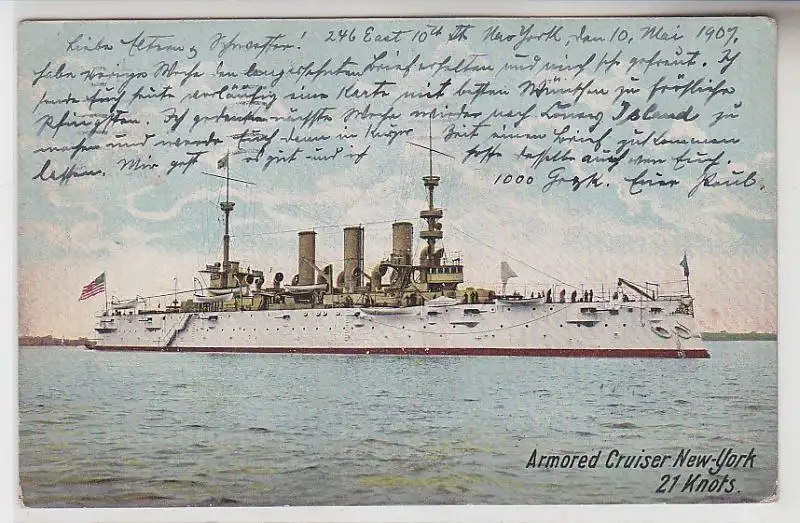 Liebe Eltern & Schwester! 246 East 10th St. New York, den 10. Mai 1907.
habe vorige Woche den langersehnten Brief erhalten und mich sehr gefreut. Ich
sende Euch heute vorläufig eine Karte mit besten Wünschen zu fröhliche
Pfingsten. Ich gedenke nächste Woche wieder nach Coney Island zu
machen und werde Euch dann in kurzer Zeit einen Brief zukommen
lassen. Mir geht es gut und ich hoffe dasselbe auch von Euch.
1000 Euer Paul.
Armored Cruiser New-York
21 Knots.